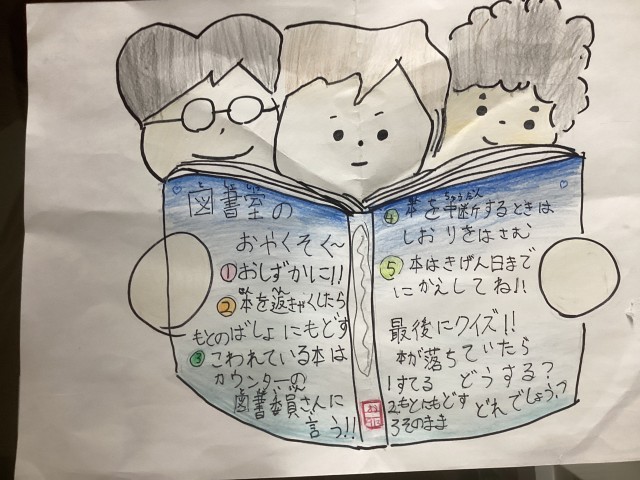 図書室の
おやくそく〜
①おしずかに!!
②本を返きゃくしたら
もとのばしょにもどす
③こわれている本は
カウンターの
図書委員さんに
言う!!
④本を中断するときは
ちゅうだん
しおりをはさむ
⑤本はきげん日まで
にかえしてね!!
最後にクイズ!!
本が落ちていたら
どうする?
1すてる
2もとにもどす
3そのまま
どれでしょう?